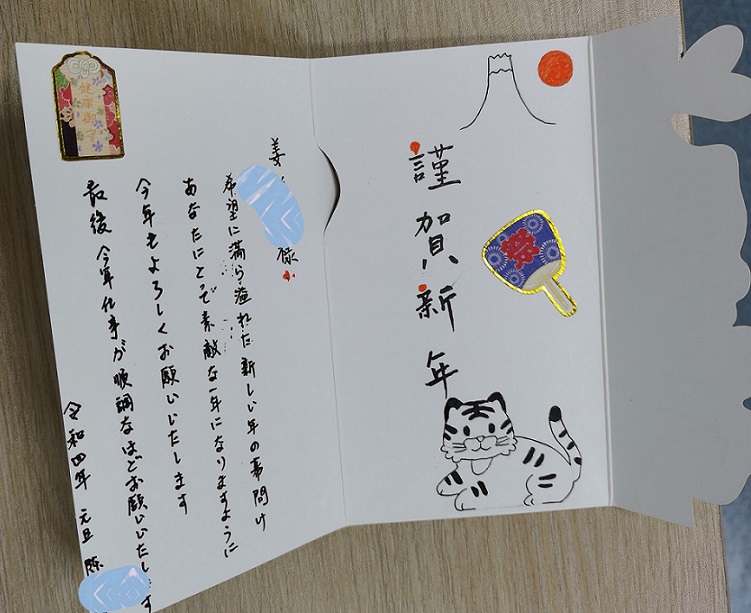 謹賀新年
祭
姜 様
希望に満ち溢れた新しい年の幕開け
あなたにとって素敵な一年になりますように
今年もよろしくお願いいたします
最後 今年仕事が順調なほどお願いいたします
令和四年 元旦
健康御守